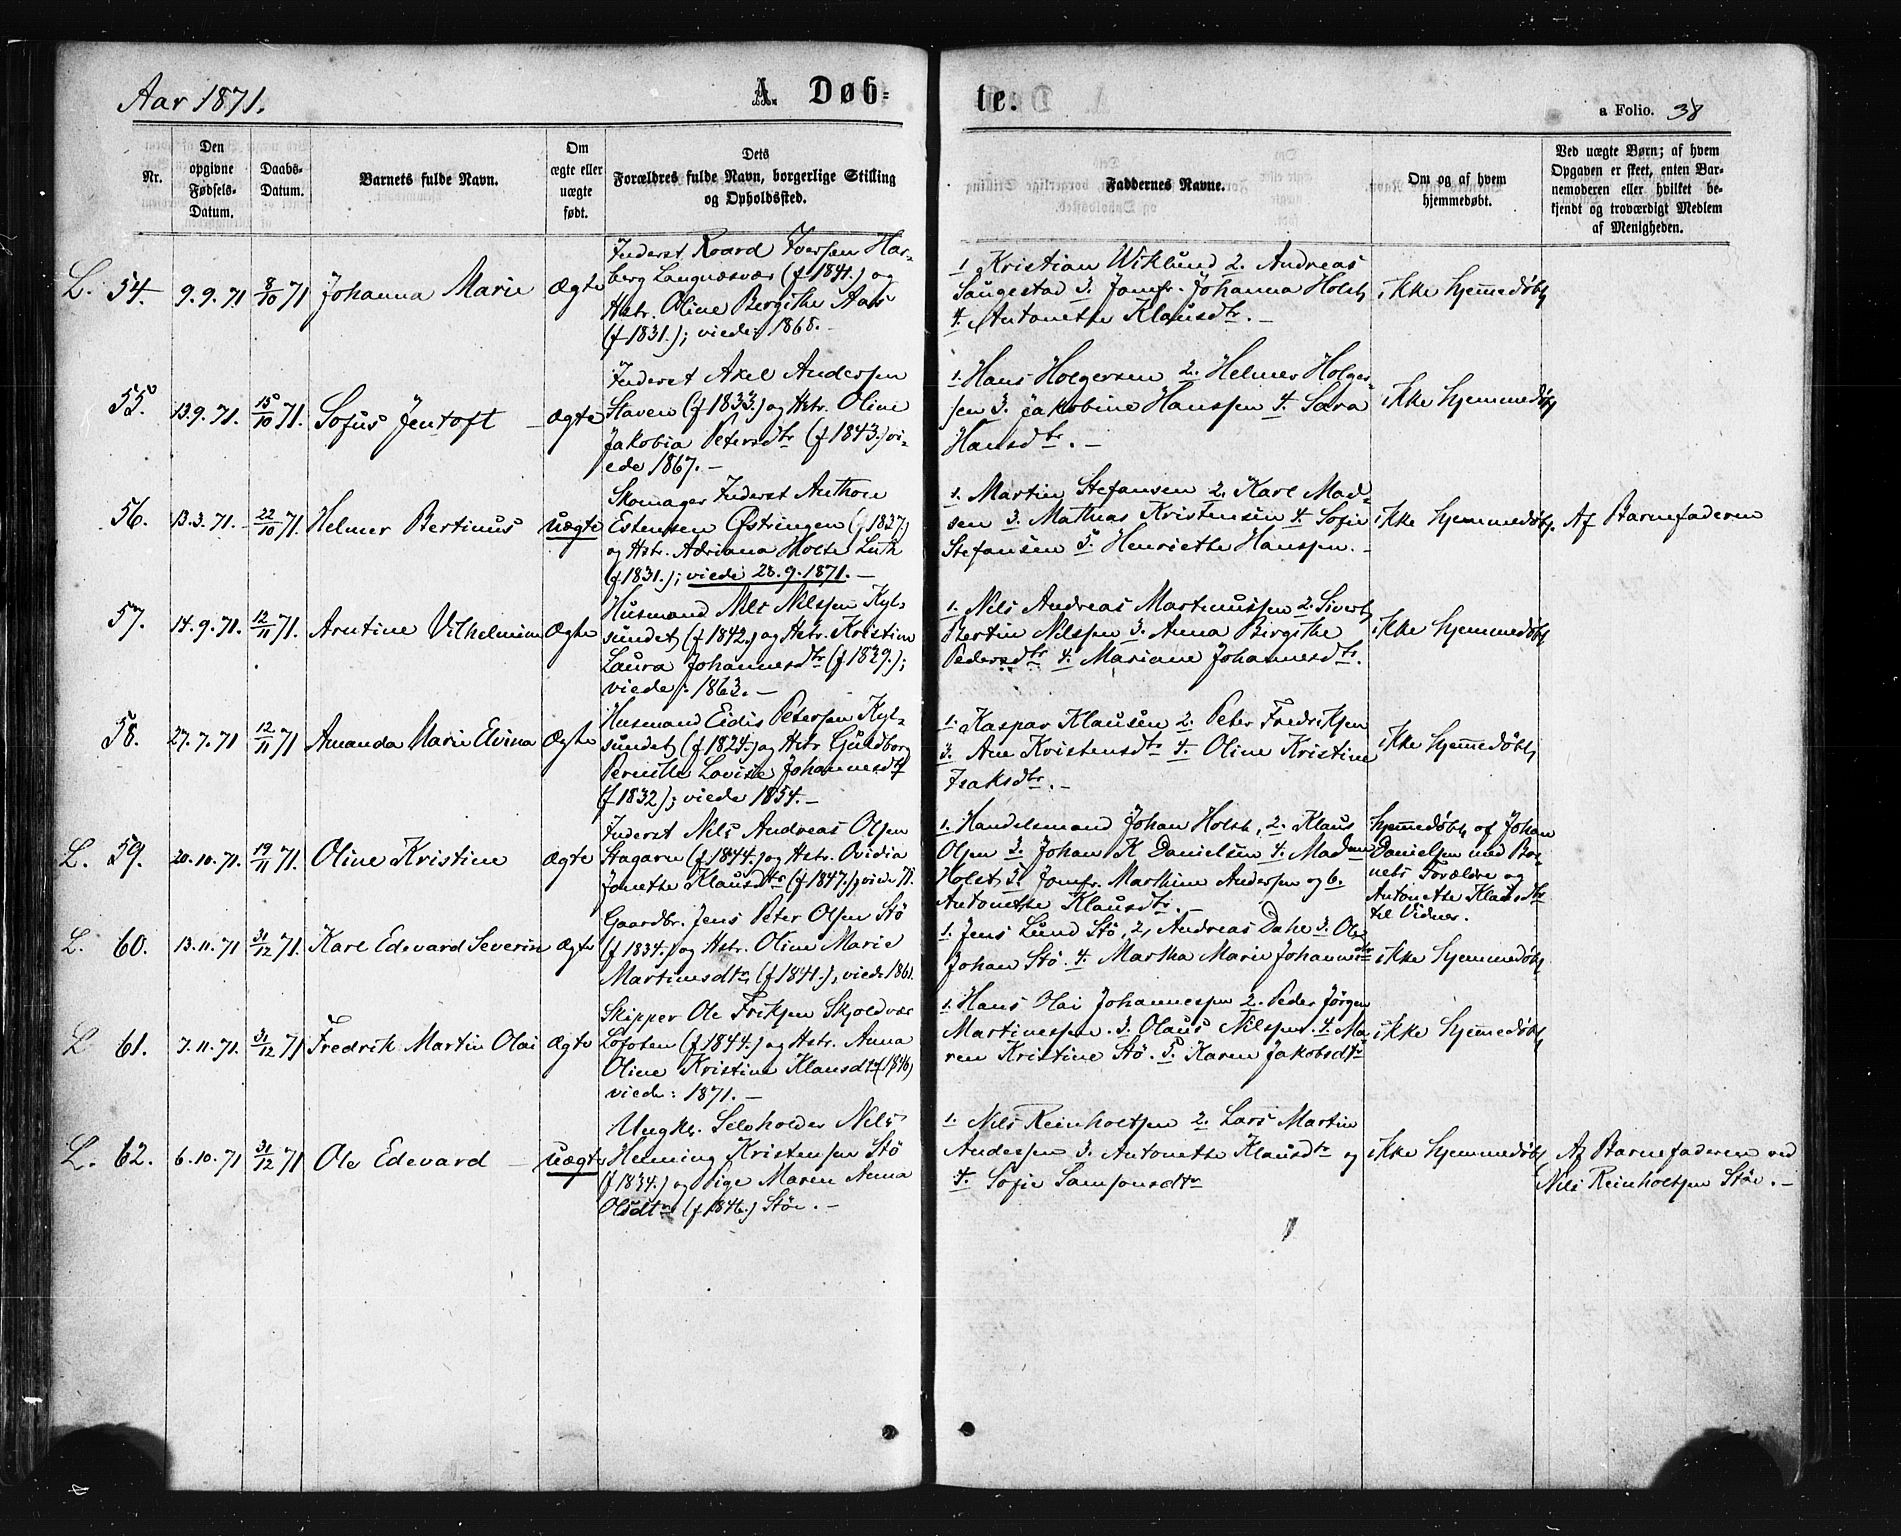 Aar 1871.
A. Døb-
te.
a Folio. 38
Nr.
Den opgivne Fødsels-Datum.
Daabs-Datum.
Barnets fulde Navn.
Om ægte eller uægte født.
Dets Forældres fulde Navn, borgerlige Stilling og Opholdssted.
Faddernes Navne.
Om og af hvem hjemmedøbt.
Ved uægte Børn; af hvem Opgaven er skeet, enten Barnemoderen eller hvilket bekjendt og troværdigt Medlem af Menigheden.
L. 54. 9.9.71 8/10 71 Johanna Marie Ægte
Inderst Roard Iversen Har-
berg Langnæsvær (f 1841.) og
Hstr. Oline Bergithe Aas
(f 1831.); viede: 1868.-
1. Kristian Wiklund 2. Andreas
Saugestad 3. Jomfr. Johanna Holst
4. Antonette Klausdtr. -
ikke hjemmedøbt
55. 13.9.71. 15/10 71. Sofus Jentoft - ægte
Inderst Axel Andersen
Staven (f 1833.) og Hstr. Oline
Jakobia Petersdtr (f 1843.) vi-
ede 1867. -
1. Hans Holgersen 2. Helmer Holger-
sen 3. Jakobine Hanssen 4. Sara
Hansdtr. -
ikke hjemmedøbt
56. 13.3.71. - 22/10 71. Helmer Bertinus uægte
Skomager Inderst Anthon
Estensen Østringen (f 1827)
og Hstr. Adriana Holte Luth
(f 1831.); viede 28.9.1871. -
1. Martin Stefansen 2. Karl Mad-
sen 3. Mathias Kristensen 4. Sofie
Stefansen 5. Henriette Hanssen. -
ikke hjemmedøbt. Af Barnefaderen
57. 14.9.71. 12/11 71. Arntine Vilhelmine Ægte
Husmand Nils Nilssen Kyl-
sundet (f 1842.) og Hstr. Kristine
Laura Johannesdtr (f 1839.);
viede: 1863. -
1. Nils Andreas Martinussen 2. Sivert
Bertin Nilssen 3. Anna Birgithe
Pedersdtr 4. Mariane Johannesdtr.
ikke hjemmedøbt
58. 27.7.71 12/11 71 Amanda Marie Elvina Ægte
Husmand Eidis Petersen Kyl-
sundet (f 1824.) og Hstr Guldborg
Pernille Lovise Johannesdtr
(f 1832); viede 1854. -
1. Kaspar Klausen 2. Peter Fredriksen
3. Ane Kristensdtr 4. Oline Kristine
Isaksdtr. -
ikke hjemmedøbt
L. 59. 20.10.71. 19/11 71. Oline Kristine ægte
Inderst Nils Andreas Olsen
Stagarn (f 1844.) og Hstr. Ovidia
Jonette Klausdtr (f 1847.); viede 71.
1. Handelsmand Johan Holst, 2. Klaus
Olsen 3. Johan K Danielsen 4. Madm
Holst 5. Jomfr. Marthine Andersen og 6.
Antonette Klausdtr. -
hjemmedøbt af Johan
Danielsen med Bar-
nets Forældre og
Antonette Klausdtr
til Vidner.
L. 60. 13.11.71 31/12 71. Karl Edevard Severin Ægte
Gaardbr. Jens Peter Olsen Stø
(f 1834.) og Hstr. Oline Marie
Martinsdtr, (f 1841.); viede 1861.
1. Jens Lund Stø, 2, Andreas Dahe 3. Ole
Johan Stø. 4. Martha Marie Johannesdtr
ikke hjemmedøbt
L 61. 7.11.71. 31/12 71 Fredrik Martin Olai Ægte
Skipper Ole Eriksen Skjoldvær
Lofoten (f 1844.) og Hstr. Anna
Oline Kristine Klausdtr (1846)
viede: 1871. -
1. Hans Olai Johannesen 2. Peder Jørgen
Martinessen. 3. Olaus Nilssen. 4. Ma-
ren Kristine Stø. 5. Karen Jakobsdtr
ikke hjemmedøbt
L. 62. 6.10.71 31/12 71 Ole Edevard - uægte
Ungkl. Selvholder Nils
Henning Kristensen Stø
(f 1834.) og Pige Maren Anna
Olsdtr (f 1846.) Støe. -
1. Nils Reinholtsen 2. Lars Martin
Andersen 3. Antonette Klausdtr og
4. Sofie Samsonsdtr
ikke hjemmedøbt
Af Barnefaderen ved
Nils Reinholtsen Støe. -